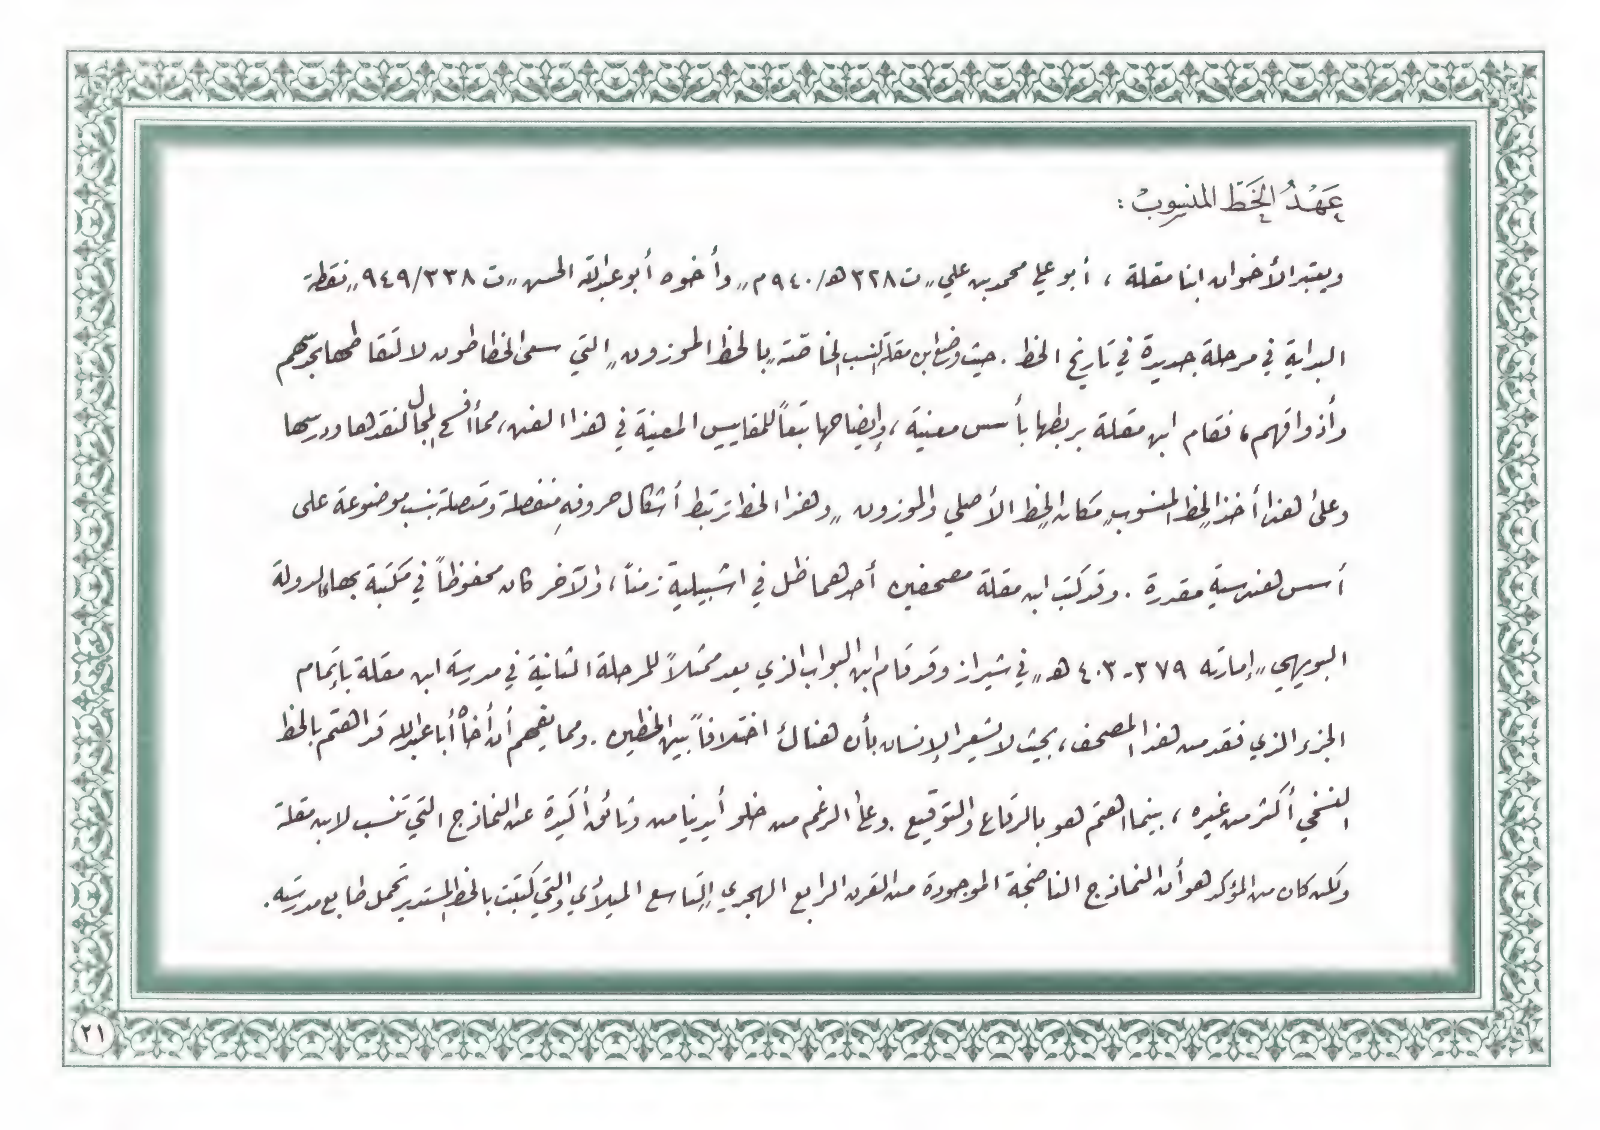 عَهْدُ الخَطّ المنسوبْ :
ويعتبر الأخوان ابنا مقلة ، أبو علي محمد بن علي „ ت ٣٢٨ هـ/٩٤٠م „ وأخوه أبو عبدالله الحسن „ ت ٩٤٩/٣٣٨ „ نقطة
البداية في مرحلة جديدة في تاريخ الخط . حيث وضع ابن مقلة النسب الخاصّة „ بالخط الموزون „ التي سعى الخطاطون لالتقاطها بحسّهم
وأذواقهم ، فقام ابن مقلة بربطها بأسس معينة ، وإيضاحها تبعاً للمقاييس المعينة في هذا الفن ، مما أفسح المجال لنقدها ودرسها
وعلى هذا أخذ الخط المنسوب مكان الخط الأصلي والموزون „ وهذا الخط تربط أشكال حروفهِ منفصلة ومتصلة بنسب موضوعة على
أسس هندسية مقدرة . وقد كتب ابن مقلة مصحفين أحدهما ظل في اشبيلية زمناً ، والآخر كان محفوظاً في مكتبة بهاء الدولة
البويهي „ إمارته ٣٧٩-٤٠٣ هـ „ في شيراز وقد قام ابن البواب الذي يعد ممثلاً للمرحلة الثانية في مدرسة ابن مقلة بإتمام
الجزء الذي فقد من هذا المصحف ، بحيث لا يشعر الإنسان بأن هناك اختلافاً بين الخطين . ومما يفهم أن أخاه أبا عبدالله قد اهتم بالخط
النسخي أكثر من غيره ، بينما اهتم هو بالرقاع والتوقيع . وعلى الرغم من خلو أيدينا من وثائق أكيدة عن النماذج التي تنسب لابن مقلة
ولكن كان من المؤكد هو أن النماذج الناضجة الموجودة من القرن الرابع الهجري التاسع الميلادي والتي كتبت بالخط المستدير تحمل طابع مدرسته .
٢١